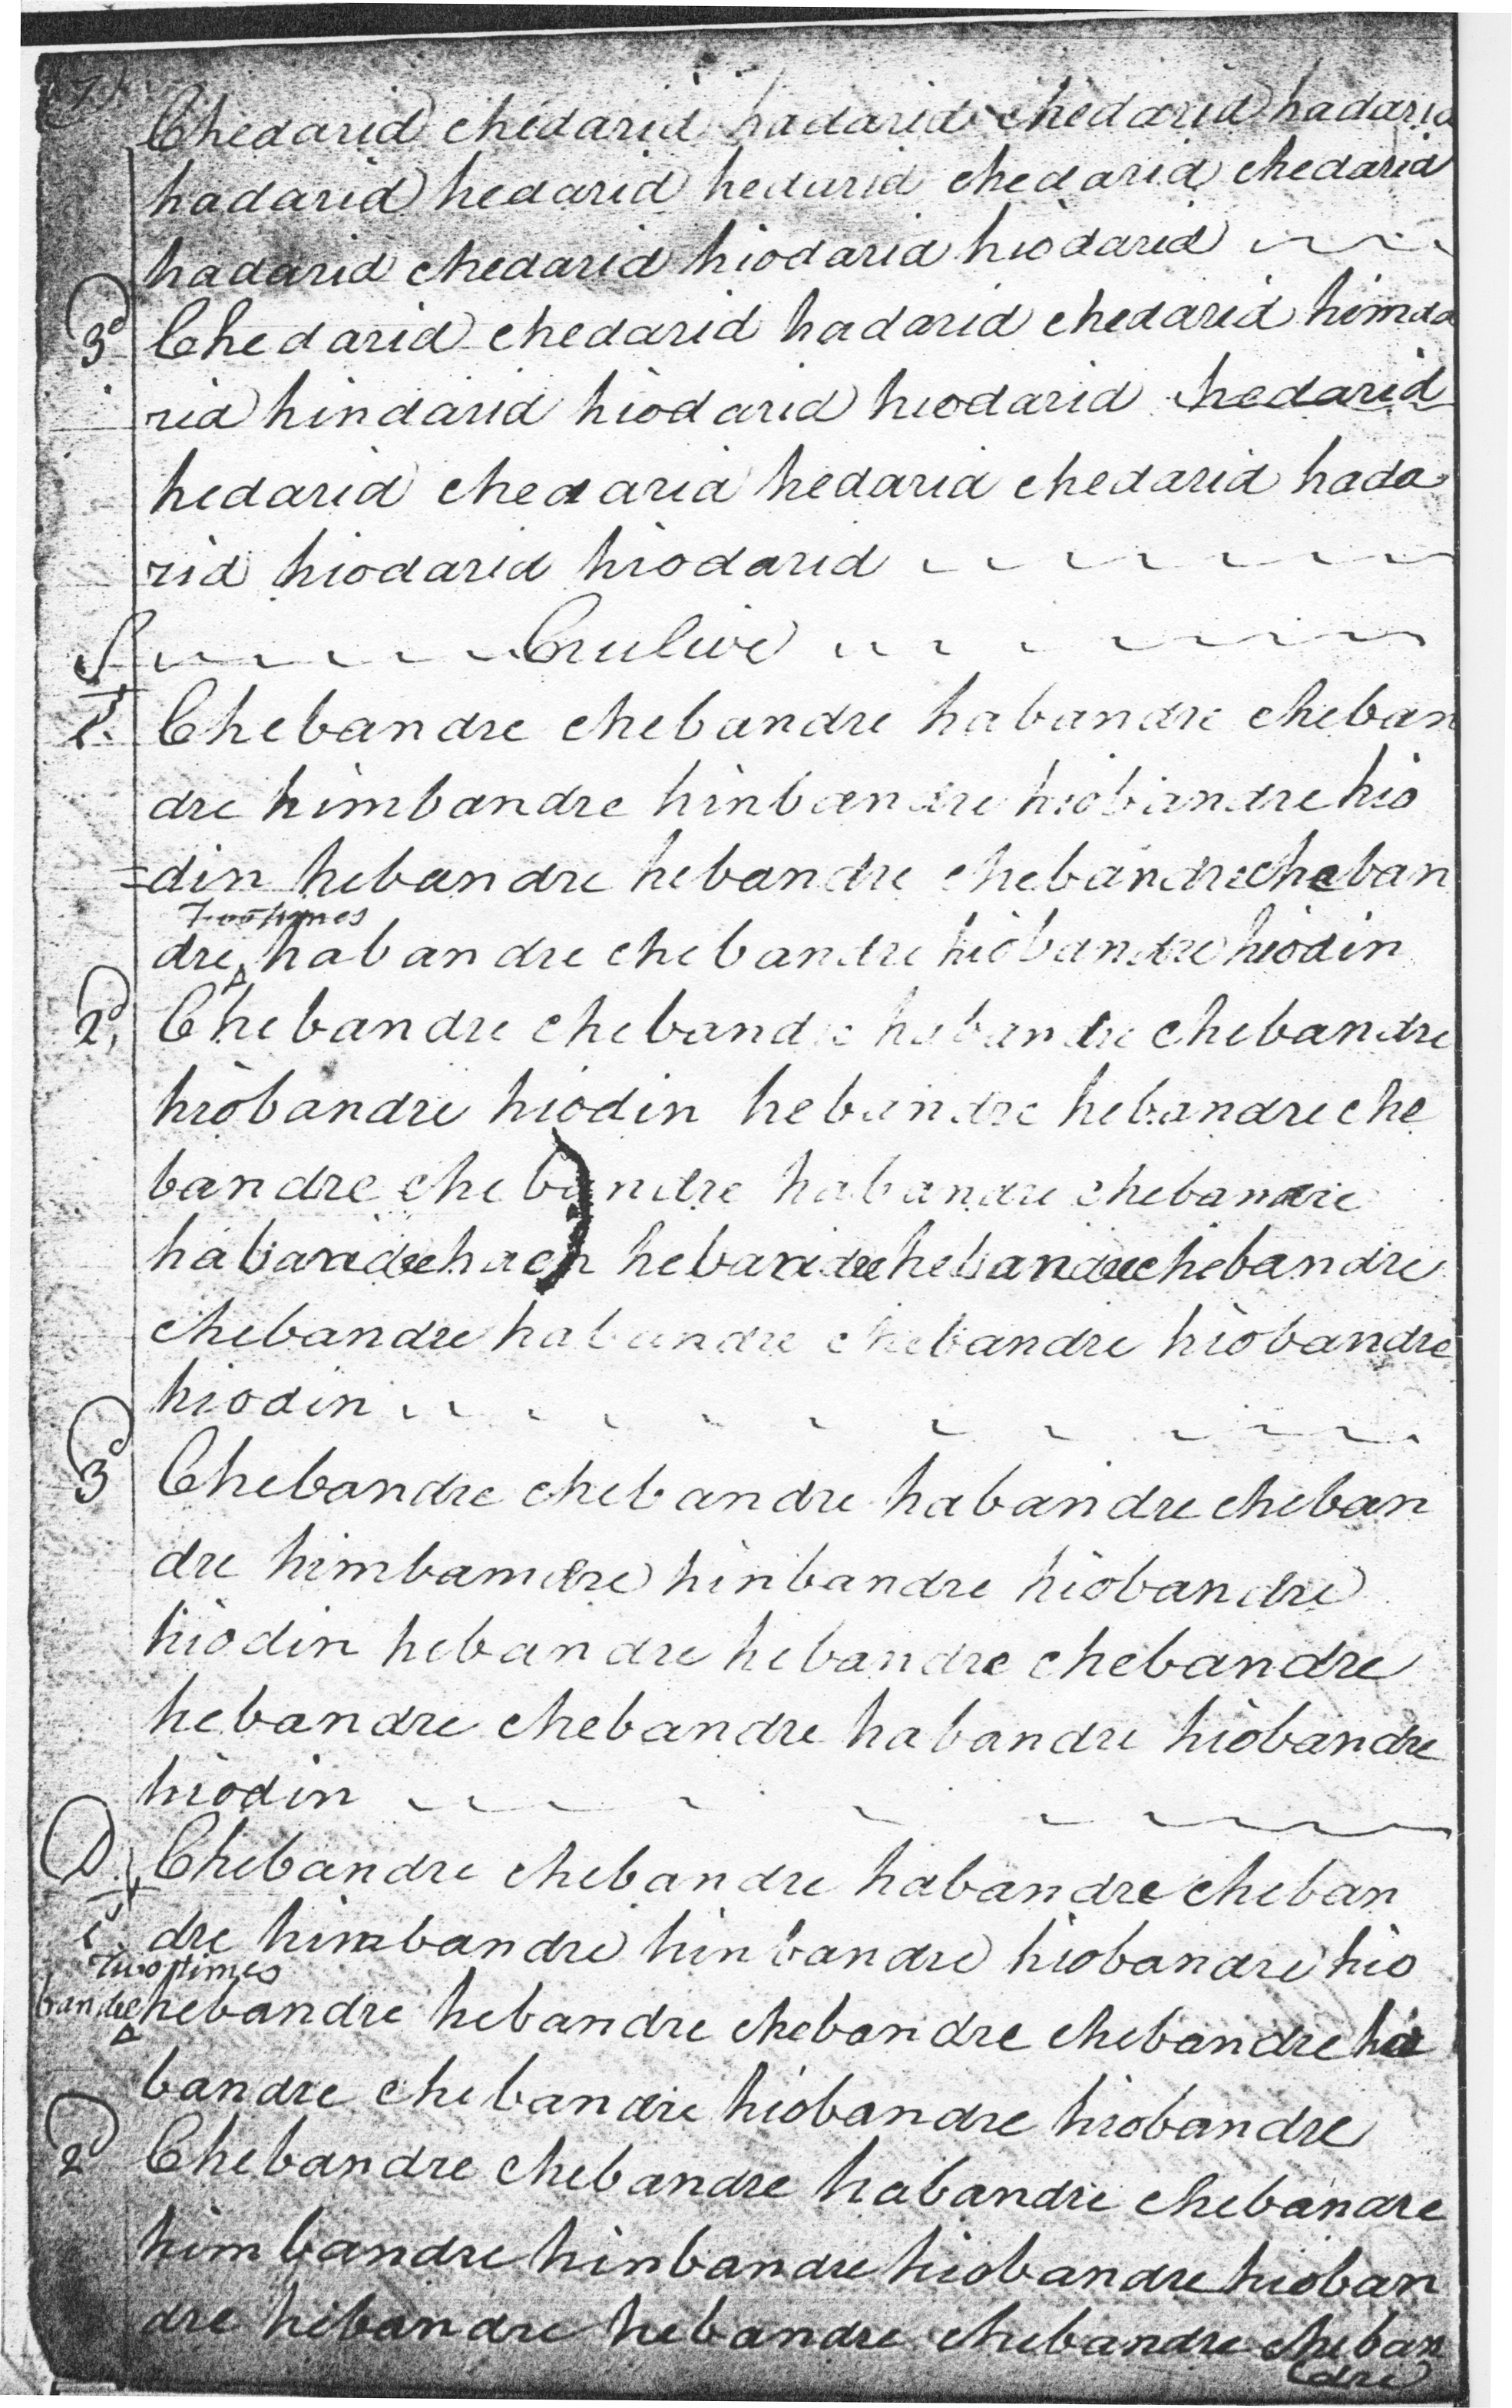 (7)
Chedarid chedarid hadarid chedarid hadarid
hadarid hedarid hedarid chedarid chedarid
hadarid chedarid hiodarid hiodarid
3d Chedarid chedarid hadarid chedarid himda
rid hindarid hiodarid hiodarid chedarid
hedarid chedarid hedarid chedarid hada
rid hiodarid hiodarid
S Crulive
1st Chebandre chebandre habandre cheban
dre himbandre hinbandre hiobandre hio
=din hebandre hebandre chebandre cheban
Two times
dre habandre chebandre hiobandre hiodin
2d, Chebandre chebandre habandre chebandre
hiobandre hiodin hebandre hebandre che
bandre chebandre habandre chebandre
habandre hebandre hebandre chebandre
chebandre habandre chebandre hiobandre
hiodin
3d Chebandre chebandre habandre cheban
dre himbamdre hinbandre hiobandre
hiodin hebandre hebandre chebandre
hebandre chebandre habandre hiobandre
hiodin
D. Chebandre chebandre habandre cheban
1st dre himbandre hinbandre hiobandre hio
Two times
bandre hebandre hebandre chebandre chebandre ha
bandre chebandre hiobandre hiobandre
2d Chebandre chebandre habandre chebandre
himbandre hinbandre hiobandre hioban
dre hebandre hebandre chebandre cheban
dre